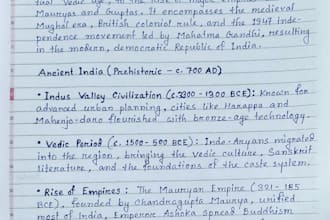 tual Vedic age, to the rise of major emp
Mauryas and Guptas. It encompasses the medieval
Mughal era, British colonial rule, and the 1947 Inde-
pendence movement led by Mahatma Gandhi, resulting
in the modern, democratic Republic of India.
Ancient India (Prehistoric - c. 700 AD)
• Indus Valley Civilization (c. 3300 - 1300 BCE): Known for
advanced urban planning, cities like Harappa and
Mohenjo-daro flourished with bronze-age technology.
• Vedic Period (c. 1500 - 500 BCE): Indo-Aryans migrated
into the region, bringing the Vedic culture, Sanskrit
literature, and the foundations of the caste system.
• Rise of Empires: The Mauryan Empire (321 - 185
BCE), founded by Chandragupta Maurya, unified
most of India, Emperor Ashoka spread Buddhism